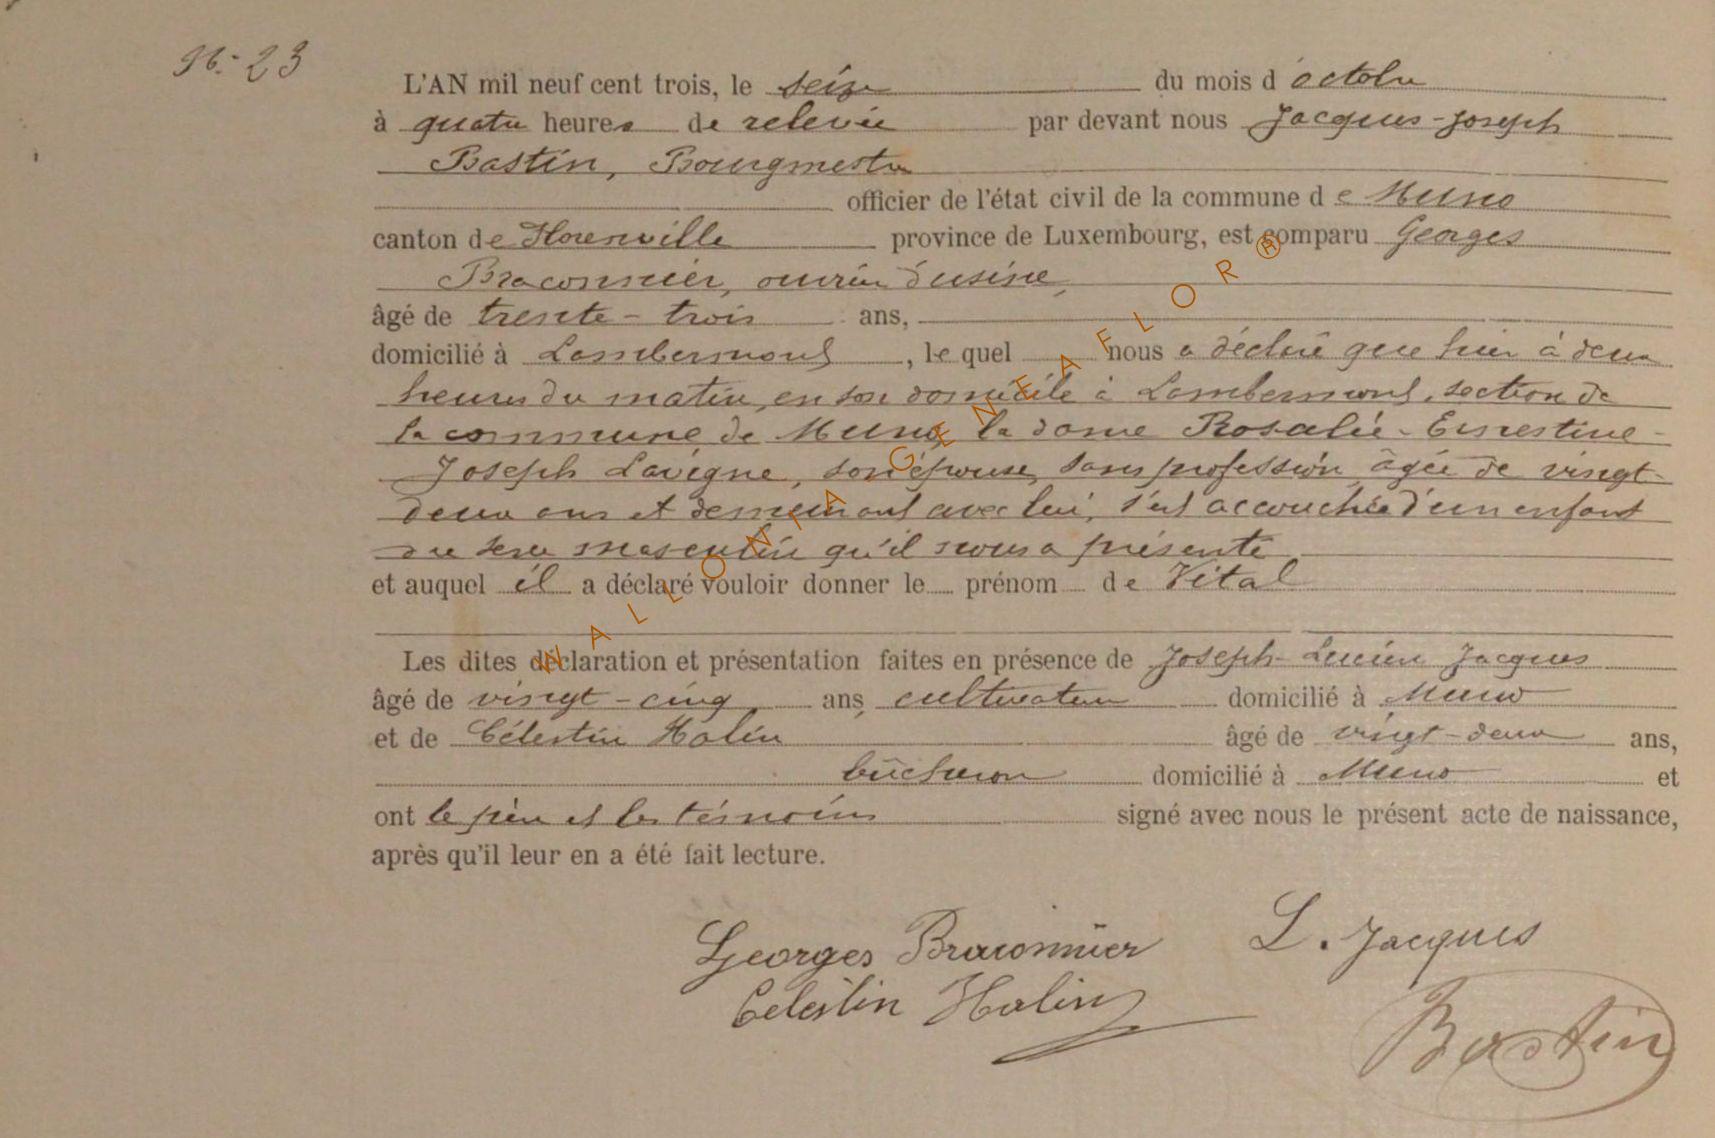 N.- 23
L'AN mil neuf cent trois, le seize du mois d'octobre
à quatre heures de relevée par devant nous Jacques-Joseph
Bastin, Bourgmestre
officier de l'état civil de la commune de Muno
canton de Florenville province de Luxembourg, est comparu Georges
Braconnier, ouvrier d'usine,
âgé de trente-trois ans,
domicilié à Lambermont, lequel nous a déclaré que hier à deux
heures du matin, en son domicile à Lambermont, section de
la commune de Muno, la dame Rosalie-Ernestine-
Joseph Lavigne, son épouse, sans profession, âgée de vingt-
deux ans et demeurant avec lui, s'est accouchée d'un enfant
du sexe masculin qu'il nous a présenté
et auquel il a déclaré vouloir donner le prénom de Vital
Les dites déclaration et présentation faites en présence de Joseph-Lucien Jacques
âgé de vingt-cinq ans, cultivateur domicilié à Muno
et de Célestin Halin âgé de vingt-deux ans,
bûcheron domicilié à Muno et
ont le père et les témoins signé avec nous le présent acte de naissance,
après qu'il leur en a été fait lecture.
Georges Braconnier L. Jacques
Celestin Halin
Bastin
WALLONIA GENEAFLOR ®